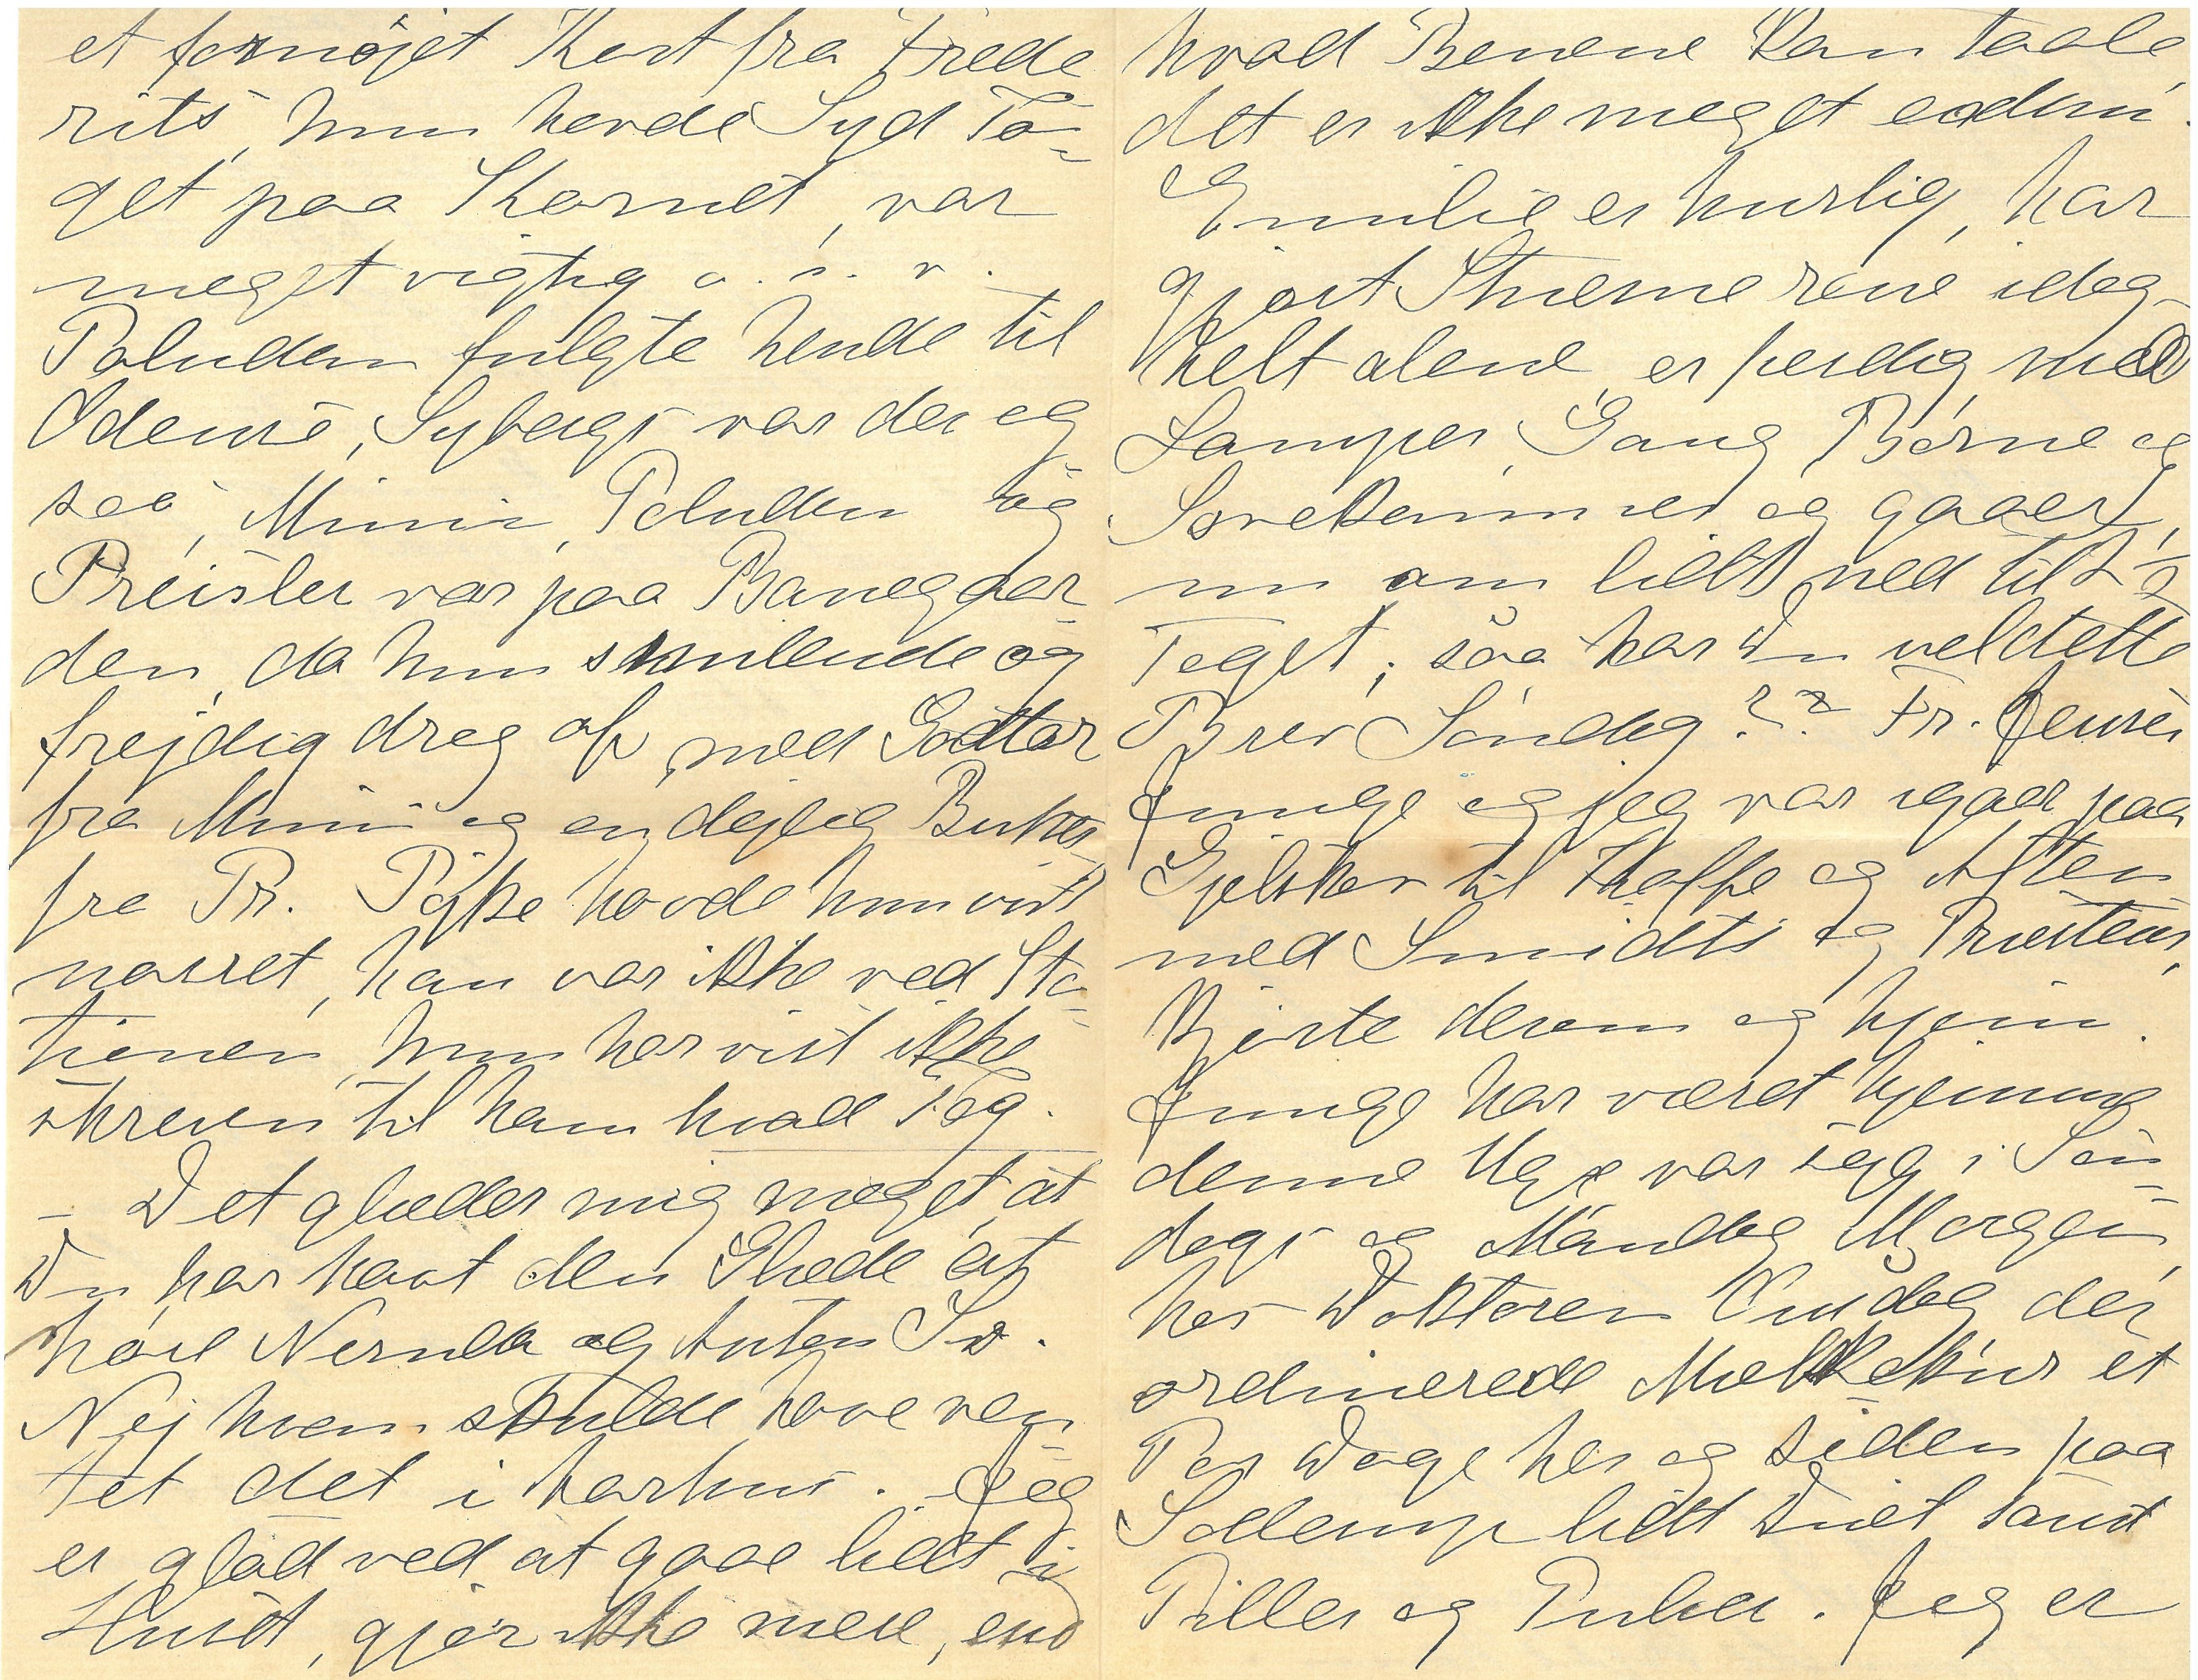 et fornøjet Kort fra Frede
rits, hun havde Syd To-
get paa Kornet, var
meget vigtig o. s. v.
Paludan fulgte hende til
Odense, Sybergs var der og
saa, Mimi, Paludan og
Preisler var paa Banegaar
den, da hun smilende og
frejdig drog af med Godter
fra Mimi og en dejlig Buket
fra Pr. Pøjke havde hun vist
narret, han var ikke ved Sta-
tionen, hun har vist ikke
skreven til ham hvad Tog.
- Det glæder mig meget, at
Du har havt den Glæde at
høre Neruda og Anton Sv.
Nej hvem skulde have ven
tet det i Aarhus. Jeg
er glad ved at gaae lidt i
Huset, gjør ikke mere, end
hvad Benene kan taale,
det er ikke meget endnu.
Emilie er huslig, har
gjort Stuerne rene idag
helt alene, er færdig med
Lamper, Gang, Børne og
Sovekammer og gaaer
nu om lidt ned til
Toget; saa har Du vel dette
Brev Søndag?? Fr. Jensen
Junge og jeg var igaar paa
Gjelskov til Kaffe og Aften
med Smidts og Præstens,
Kjørte derom og hjem.
Junge har været hjemme
denne Uge var syg i Søn-
dags og Mandag Morgen,
hos Doktoren Onsdag der
ordinerede Mælkekur et
Par Dage her og siden paa
Sollerup lidt Diæt samt
Piller og Pulver. Jeg er